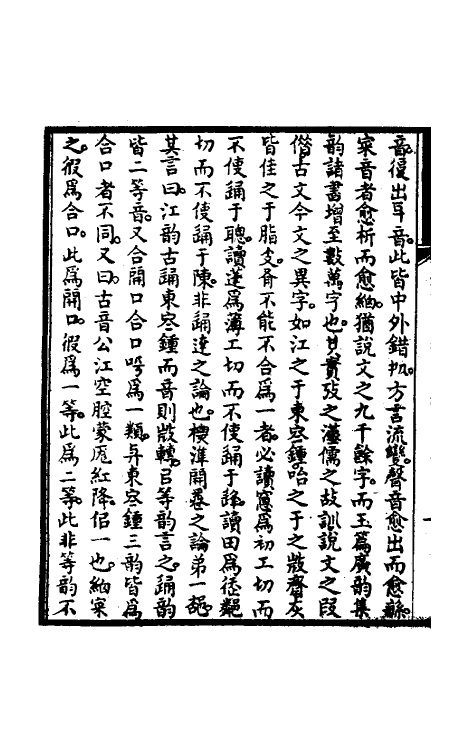 音復出耳音此皆中外錯轨方言流變聲音愈出而愈繇
宷音者愈析而愈紬猶說文之九千餘字而玉篇廣韵集
韵諸書增至數萬字也其實攷之漢儒之故訓說文之叚
偕古文今文之異字如江之于東冬鍾哈之于之㪚齊灰
皆佳之于脂支斉不能不合爲一者必讀窻爲初工切而
不使踊于聰讀蓬爲薄工切而不使踊于䤶讀田爲徒𪓌
切而不使踊于陳非踊達之論也椶準開卷之論弟一
其言曰江韵古踊東冬鍾而音則㪚轉㠯等韵言之踊韵
皆二等音又合開口合口呺爲一類与東冬鍾三韵皆爲
合口者不同又曰古音公江空腔蒙厖紅降侣一也紬宷
之彶爲合口此爲開口彶爲一等此爲二等此非等韵不